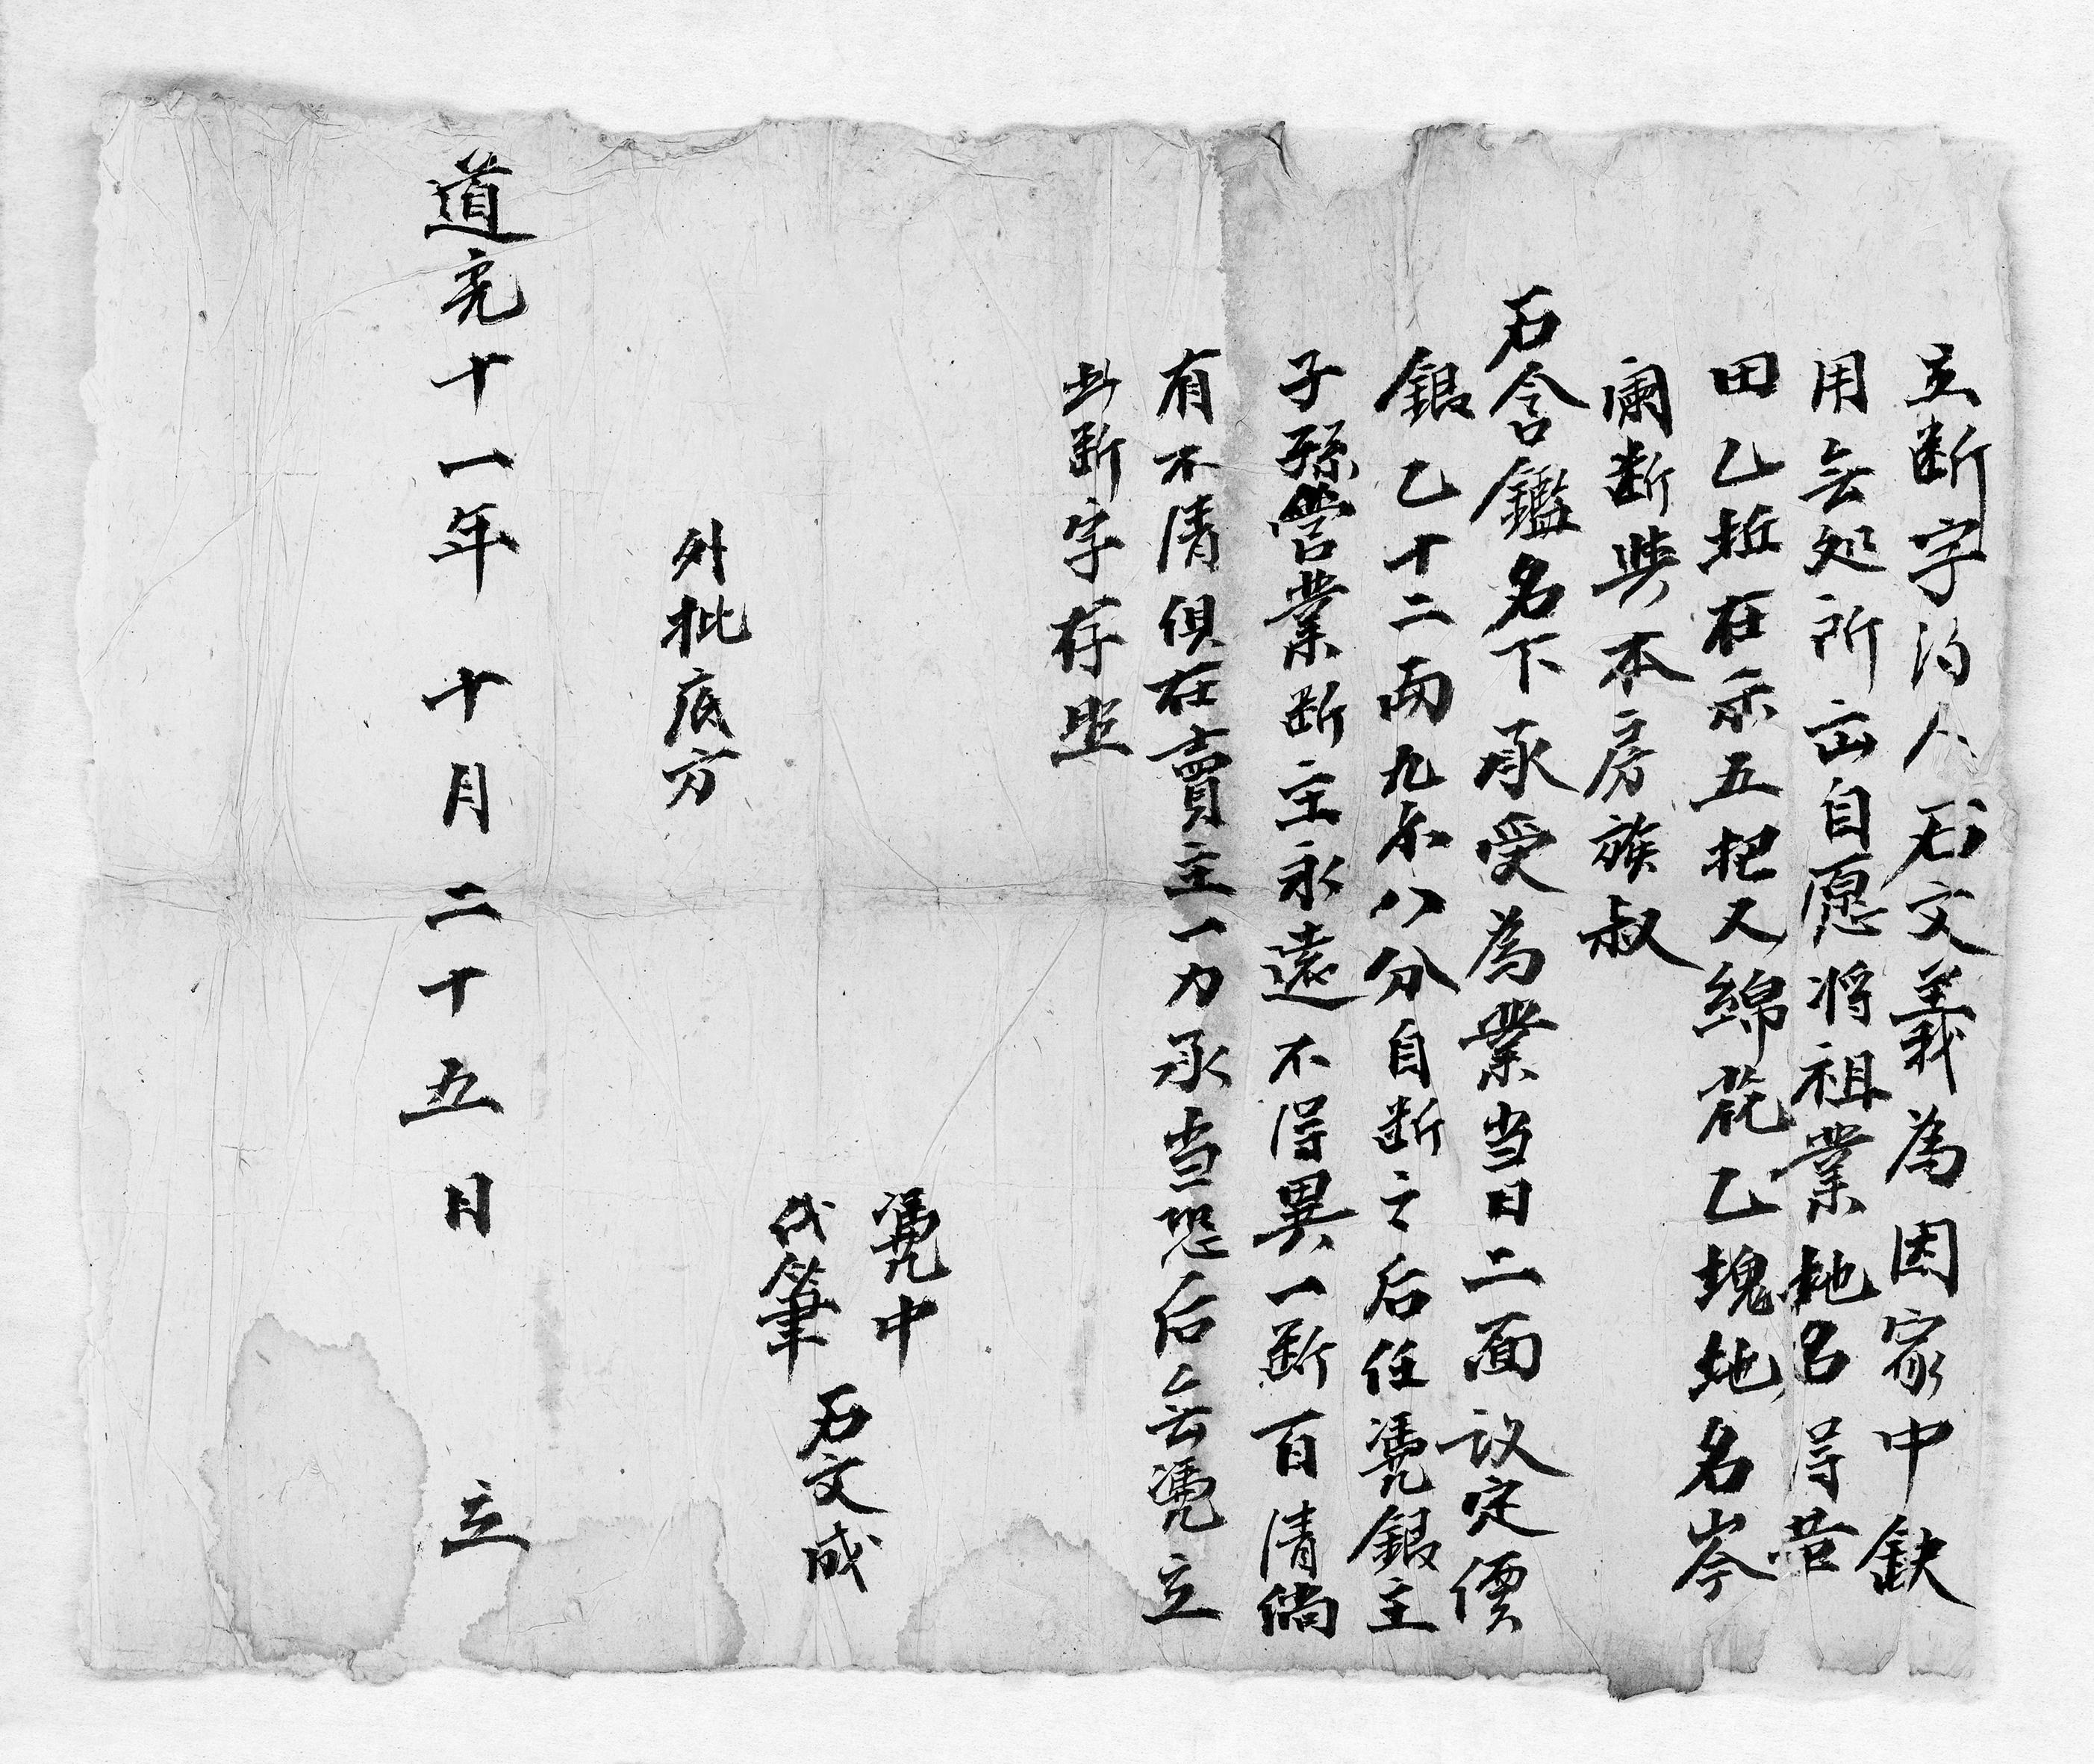 立断字约人石文義為因家中缺
用无处所出自愿将祖業地名得昔
田乙坵在禾五把又綿花乙塊地名岑
阑断與本房族叔
石含鑑名下承受為業当日二面议定價
銀乙十二両九尒八分自断之后任凴銀主
子孫营業断主永遠不得異一断百清倘
有不清俱在賣主一力承当恐后无凴立
此断字存照
凴中
石文成
代筆
外批底方
道光十一年十月二十五日立